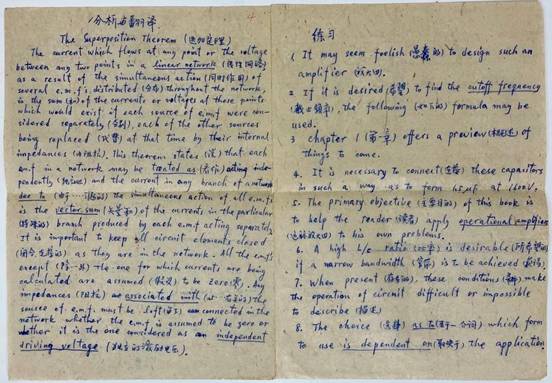 分析与翻译
The Superposition Theorem (迭加定理)
The current which flows at any point or the voltage
between any two points in a linear network (线性网路)
as a result of the simultaneous action (同时作用) of
several e.m.f.s distributed (分布) throughout the network,
is the sum (和) of the currents or voltages at these points
which would exist if each source of e.m.f were con-
sidered separately (分别), each of the other sources
being replaced (代替) at that time by their internal
impedances (内阻抗). This theorem states (说) that each
e.m.f in a network may be treated as (看作) acting inde-
pendently (独立地) and the current in any branch of a network
due to the simultaneous action of all e.m.f.s
is the vector sum of the currents in the particular
branch produced by each e.m.f acting separately
It is important to keep all circuit elements closed
as they are in the network. All the e.m.f.s
except the one for which currents are being
calculated are assumed (假设) to be zero (零). Any
impedances (阻抗) associated with the
source of e.m.f. must be left connected in the
network whether the e.m.f is assumed to be zero or
whether it is the one considered as an independent
driving voltage (独立的激励电压).
4
练习
1 It may seem foolish (愚蠢的) to design such an
amplifier (放大器).
2 If it is desired (希望) to find the cutoff frequency
(截止频率), the following (如下的) formula may be
used.
3 chapter 1 (第一章) offers a preview (概述) of
things to come.
4. It is necessary to connect (连接) these capacitors
in such a way as to form 45μf at 1600V.
5. The primary objective (主要目的) of this book is
to help the reader (读者) apply operational amplifier
(运算放大器) to his own problems.
6. A high L/c ratio (比率) is desirable (所希望的)
if a narrow bandwidth (窄带) is to be achieved
7. When present (存在的), these conditions (条件) make
the operation of circuit difficult or impossible
to describe (描述)
8. The choice (选择) as to which form
to use is dependent on (取决于) the application